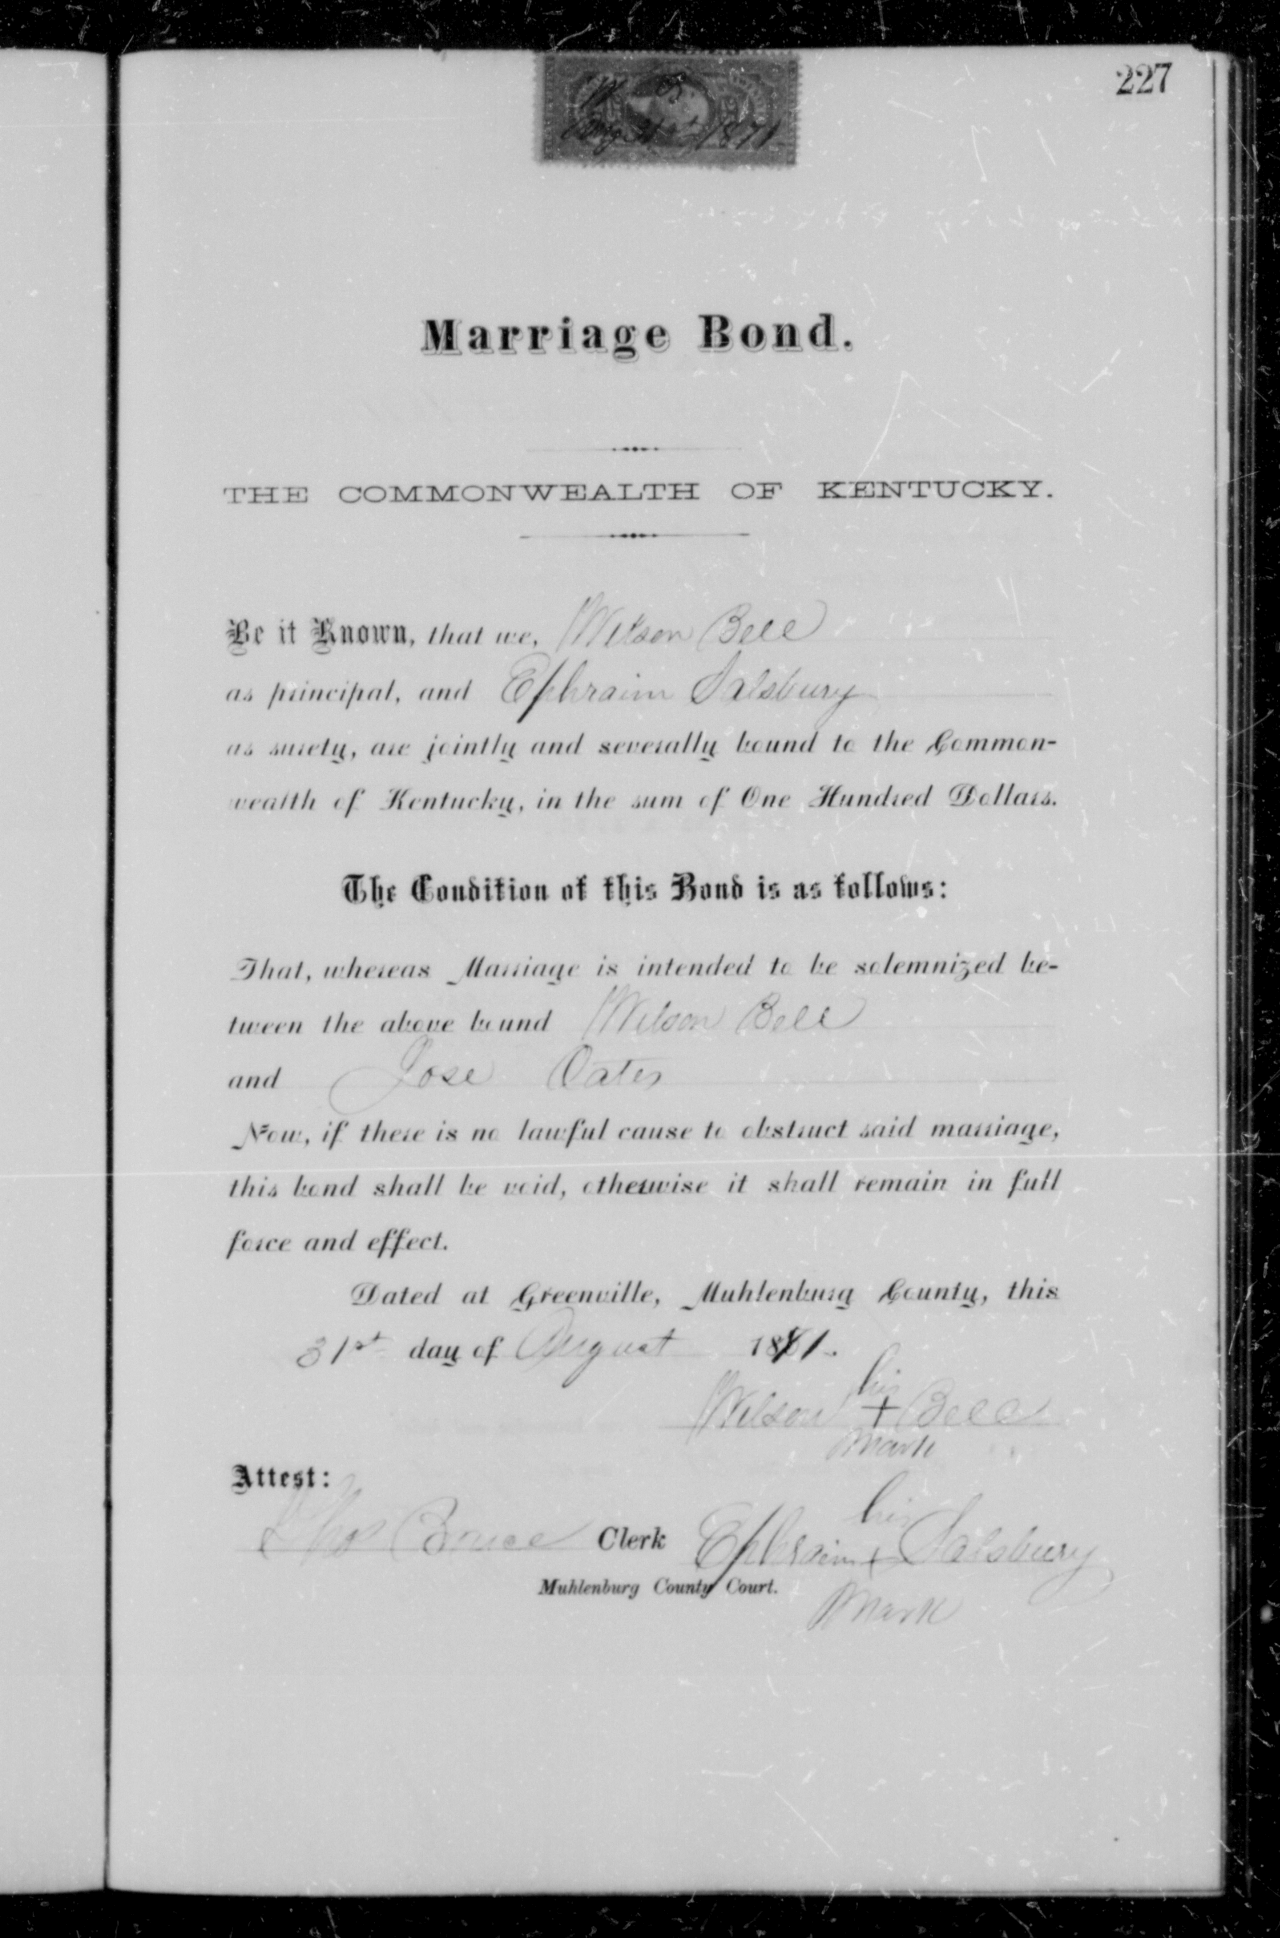 227
W B
Aug 31st 1871
Marriage Bond.
THE COMMONWEALTH OF KENTUCKY.
Be it Known, that we, Wilson Bell
as principal, and Ephraim Salsbury
as surety, are jointly and severally bound to the Common-
wealth of Kentucky, in the sum of One Hundred Dollars.
The Condition of this Bond is as follows:
That, whereas Marriage is intended to be solemnized be-
tween the above bound Wilson Bell
and Jose Oates
Now, if there is no lawful cause to obstruct said marriage,
this bond shall be void, otherwise it shall remain in full
force and effect.
Dated at Greenville, Muhlenburg County, this
31st day of August 1871.
his
Wilson + Bell
mark
Attest:
his
Thos Bruce Clerk Ephraim + Salsbury
Muhlenburg County Court.
mark